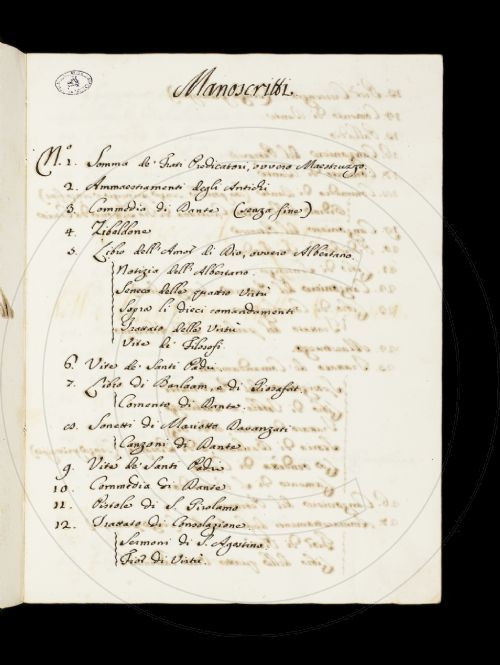 Manoscritti.
N.º 1. Somma de' Frati Predicatori, ovvero Maestruzzo.
2. Ammaestramenti degli Antichi
3. Commedia di Dante (senza fine)
4. Zibaldone
5. Libro dell'Amor di Dio, ovvero Albertano.
Notizia dell'Albertano.
Seneca delle quattro Virtù
Sopra li dieci comandamenti
Trattato delle Virtù
Vite de' Filosofi.
6. Vite de' Santi Padri.
7. Libro di Barlaam, e di Giosafat.
Comento di Dante.
8. Sonetti di Mariotto Davanzati
Canzoni di Dante
9. Vite de' Santi Padri
10. Commedia di Dante
11. Pistole di S. Girolamo
12. Trattato di Consolazione
Sermoni di S. Agostino.
Fior di Virtù.